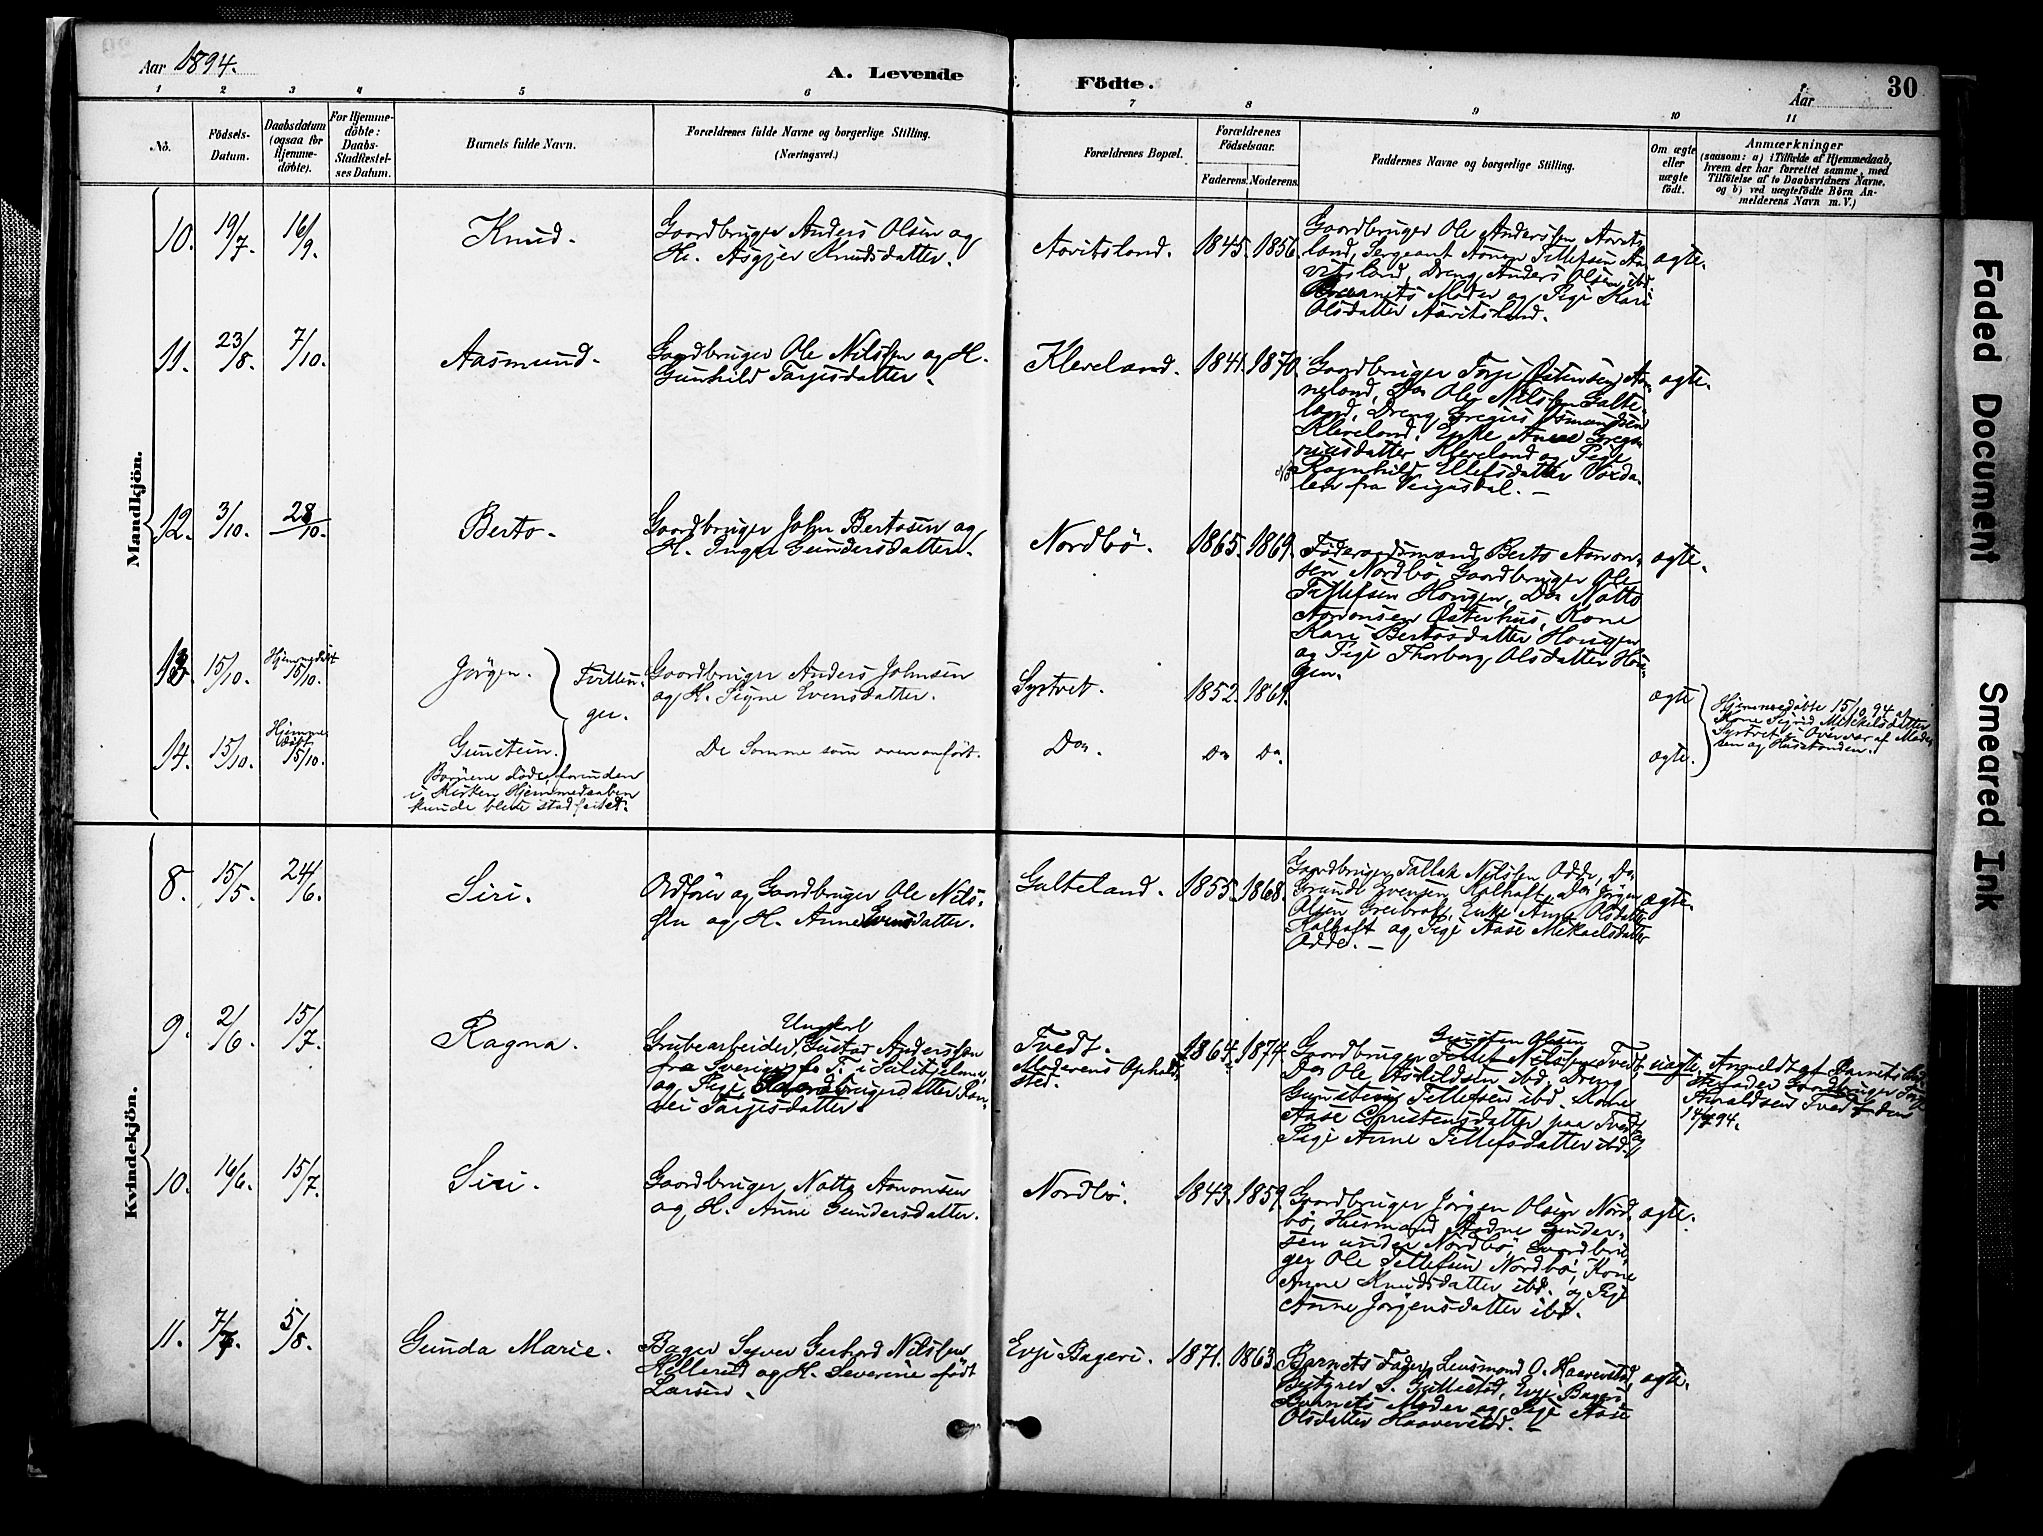 Aar 1894.
A. Levende Födte.
Aar
30
1 2 3 4 5 6 7 8 9 10 11
No.
Födsels-Datum.
Daabsdatum (ogsaa for Hjemme-döbte).
For Hjemme-döbte: Daabs-Stadfæstel-ses Datum.
Barnets fulde Navn.
Forældrenes fulde Navne og borgerlige Stilling. (Næringsvei.)
Forældrenes Bopæl.
Forældrenes Födselsaar.
Faderens. Moderens.
Faddernes Navne og borgerlige Stilling.
Om ægte eller uægte födt.
Anmærkninger
(saasom: a) i Tilfælde af Hjemmedaab,
hvem der har forrettet samme, med
Tilföielse af to Daabsvidners Navne,
og b) ved uægtefödte Börn An-
melderens Navn m. V.)
Mandkjön.
10. 19/7. 16/9. Knud.
Gaardbruger Anders Olsen og
H. Asgjer Knudsdatter.
Aavitsland. 1845. 1856.
Gaardbruger Ole Anderssen Aavits-
land, Sergeant Aanen Tellefsen Aa-
vitsland, Dreng Anders Olsen ibd.
Barnets Moder og Pige Kari
Olsdatter Aavitsland.
ægte.
11. 23/8. 7/10. Aasmund.
Gaardbruger Ole Nilssen og H.
Gunhild Tarjesdatter.
Kleveland. 1841. 1870.
Gaardbruger Terje Ostensen
neland, Do Ole Nilssen Galte-
land, Dreng Gregers Osmundsen
Kleveland, Enke Anne Grego-
riusdatter Kleveland og Pige
Ragnhild Ellefsdatter
len fra Veigusdal. —
ægte.
12. 3/10. 28/10. Berto.
Gaardbruger John Bertosen og
H. Inger Gundersdatter.
Nordbö. 1865. 1869.
Föderaadsmand Berto Aanon-
sen Nordbö, Gaardbruger Ole
Tellefsen Hougen, Do Natto
Aanonsen Osterhus, Kone
Kari Bertosdatter Hougen
og Pige Thorborg Olsdatter Hou-
gen.
ægte.
13. 15/10. Hjemmedöbt 15/10. Jörgen. Tvillin-
ger.
Gaardbruger Anders Johnsen
og H. Signe Evensdatter.
Systvet. 1852. 1861.
ægte
Hjemmedöbte 15/10 94 af
Kone Sigrid Mikkelsdatter
Systvet i Overvær af Mode-
ren og Husstanden.
14. 15/10. Hjemme-döbt 15/10. Gunstein.
De Samme som ovenanfört.
Do. Do Do.
ægte.
Börnene döde, forinden
i Kirken Hjemmedaaben
kunde blive stadfæstet.
Kvindekjön.
8. 15/5. 24/6. Siri.
Ordförer og Gaardbruger Ole Nils-
sen og H. Anne Evensdatter.
Galteland. 1855. 1868.
Gaardbruger Tallak Nilssen Odde, Do
Grunde Evensen Kalhaft, Do Jörgen
Olsen Greibrok, Enke Anne Olsdatter
Kalhaft og Pige Aase Mikaelsdatter
Odde. —
ægte.
9. 2/6. 15/7. Ragna.
Ungkarl
Grubearbeider Gustav Anderssen
fra Sverige, f. T. i Sulitjelma,
og Pige Gaardbrugerdatter Ran-
vei Tarjesdatter.
Tvedt.
Moderens Opholds-
sted.
1864. 1874.
Gunsten Olsen
Gaardbruger Tellef Nilssen Tvedt,
Do Ole Askildsen ibd, Dreng
Gunsten Tellefsen ibd. Kone
Aase Christensdatter paa Tvedt og
Pige Anne Tellefsdatter ibd.
uægte.
Anmeldt af Barnets
Gaardbruger Terje
Haraldsen Tvedt den
14/7 94.
10. 16/6. 15/7. Siri.
Gaardbruger Natto Aanonsen
og H. Anne Gundersdatter.
Nordbö. 1843. 1859.
Gaardbruger Jörgen Olsen Nord-
bö, Husmand Aadne Gunder-
sen under Nordbö, Gaardbru-
ger Ole Tellefsen Nordbö, Kone
Anne Knudsdatter ibd. og Pige
Anne Jörgensdatter ibd.
ægte.
11. 7/7. 5/8. Gunda Marie.
Bager Syver Gerhard Nilssen
Hellerud og H. Severine födt
Larsen.
Evje Bageri. 1871. 1863.
Barnets Fader, Lensmand O. Haaverstad,
Bestyrer S. Gullestad, Evje Bageri
Barnets Moder og Pige Aase
Olsdatter Haaverstad. —
ægte.
Faded Document
Smeared Ink